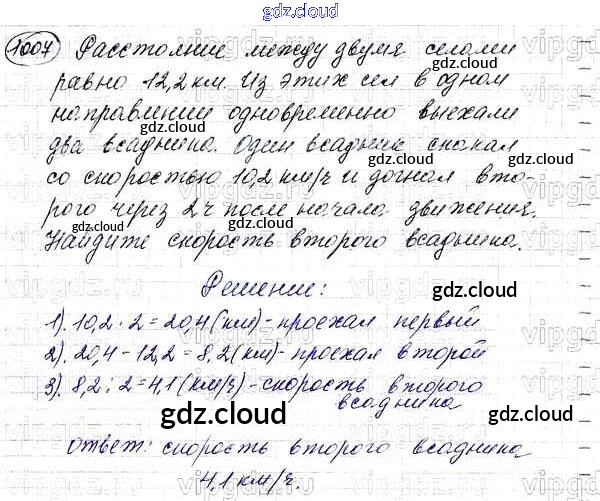 gdz.cloud
1007 Расстояние между двумя селами
равно 12,2 км. Из этих сел в одном
направлении одновременно выехали
два всадника. Один всадник скакал
со скоростью 10,2 км/ч и догнал вто-
рого через 2 ч после начала движения.
Найдите скорость второго всадника.
Решение:
1). 10,2 · 2 = 20,4 (км) - проехал первый
2). 20,4 - 12,2 = 8,2 (км) - проехал второй
3). 8,2 : 2 = 4,1 (км/ч) - скорость второго
всадника
Ответ: скорость второго всадника
4,1 км/ч.